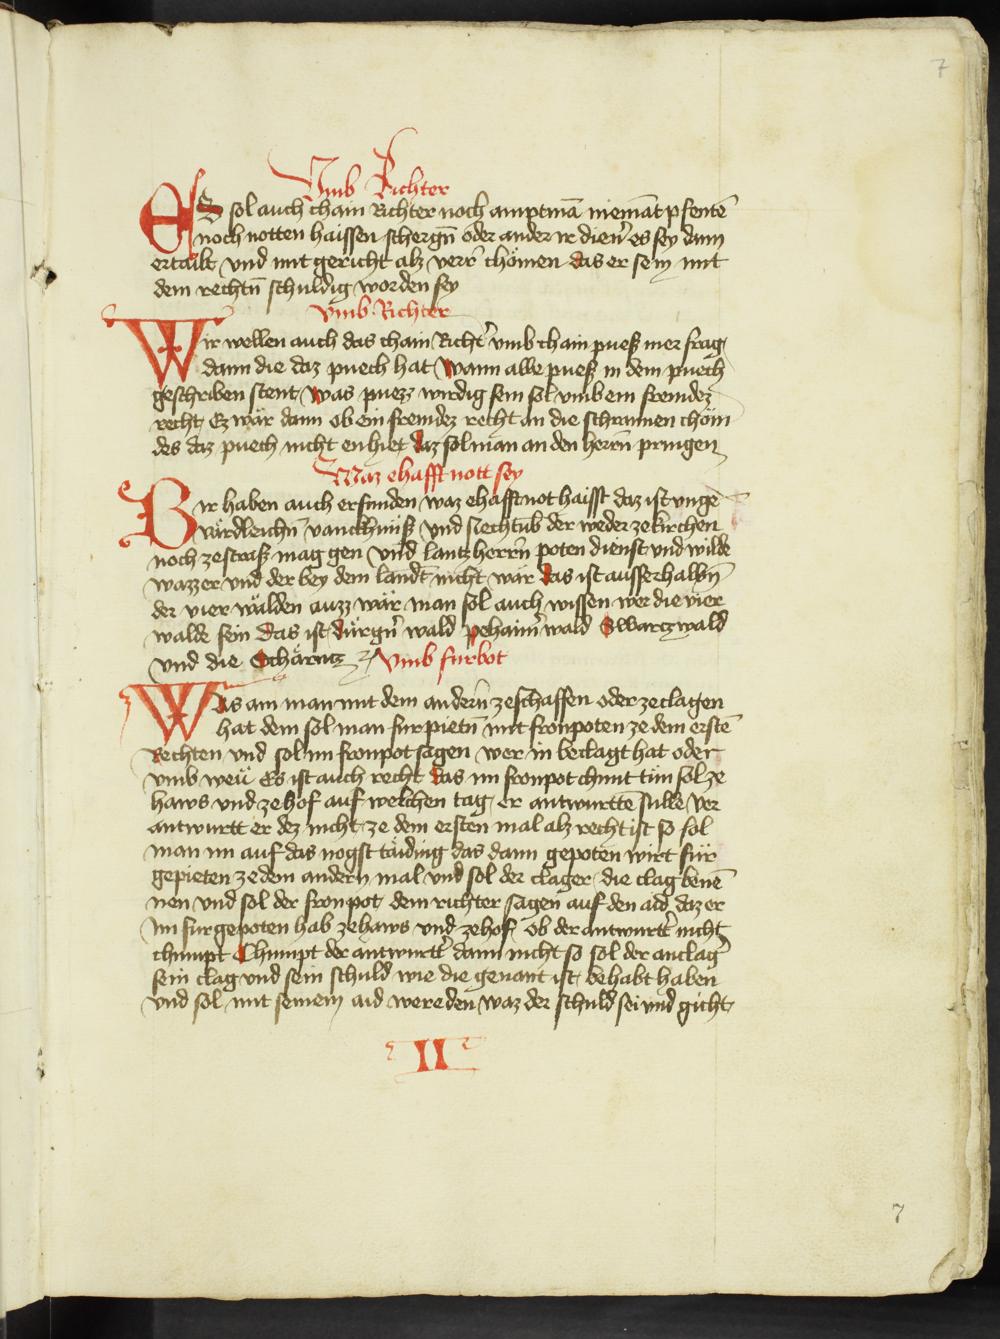 7
Vmb Richter
ES sol auch chain Richter noch amptmā niemāt pfentē
noch notten haissen schergn̄ oder ander ir dien̄ es sey dann
ertailt vnd mit gericht alz verr chömen das er sein mit
dem rechtn̄ schuldig worden sey
Vmb Richter
Wir wellen auch das chain Richt̄ vmb chain puess mer frag
dann die daz puech hat Wann alle puess in dem puech
geschriben stent was puezz wirdig sein sol vmb ein fremdez
recht Ez wär dann ob ein fremdez recht an die schrannen chöm
des daz puech nicht enhiet daz sol man an den herrn̄ pringen
Waz ehafft nott sey
Bir haben auch erfunden waz ehafft not haisst daz ist vnge
wärdleichn̄ vanckhnüss vnd Siechtūb der weder ze kirchen
noch ze strass mag gen vnd lantzherrn̄ poten dienst vnd wilde
wazzer vnd der bey dem landt nicht wär das ist ausserhalbn̄
der vier wälden auzz wär man sol auch wissen wer die vier
walde sein Das ist dürgn̄ wald pehaim̄ wald Swartzwald
vnd die Schärnitz Vmb furbot
Was am man mit dem andern̄ ze schaffen oder ze clagen
hat dem sol man furpietn̄ mit fronpoten ze dem erstē
Rechten vnd sol im fronpot sagen wer in beclagt hat oder
vmb weü Es ist auch recht das im fronpot chunt tün sol ze
haws vnd ze hof auf welchen tag er antwurttē sulle Ver
antwurtt er dez nicht ze dem ersten mal alz recht ist so sol
man im auf das nogst taiding das dann gepoten wirt für
gepieten ze dem andern mal vnd sol der clager die clag benē
nen vnd sol der fronpot dem richter sagen auf den aid daz er
Im fur gepoten hab ze haws vnd ze hof ob der antwurtt̄ nicht
chumpt Chumpt der antwurtt̄ dann nicht so sol der anclaḡ
sein clag vnd sein schuld wie die genant ist behabt haben
vnd sol mit seinem aid wereden waz der schuld sei vnd gicht
II
7